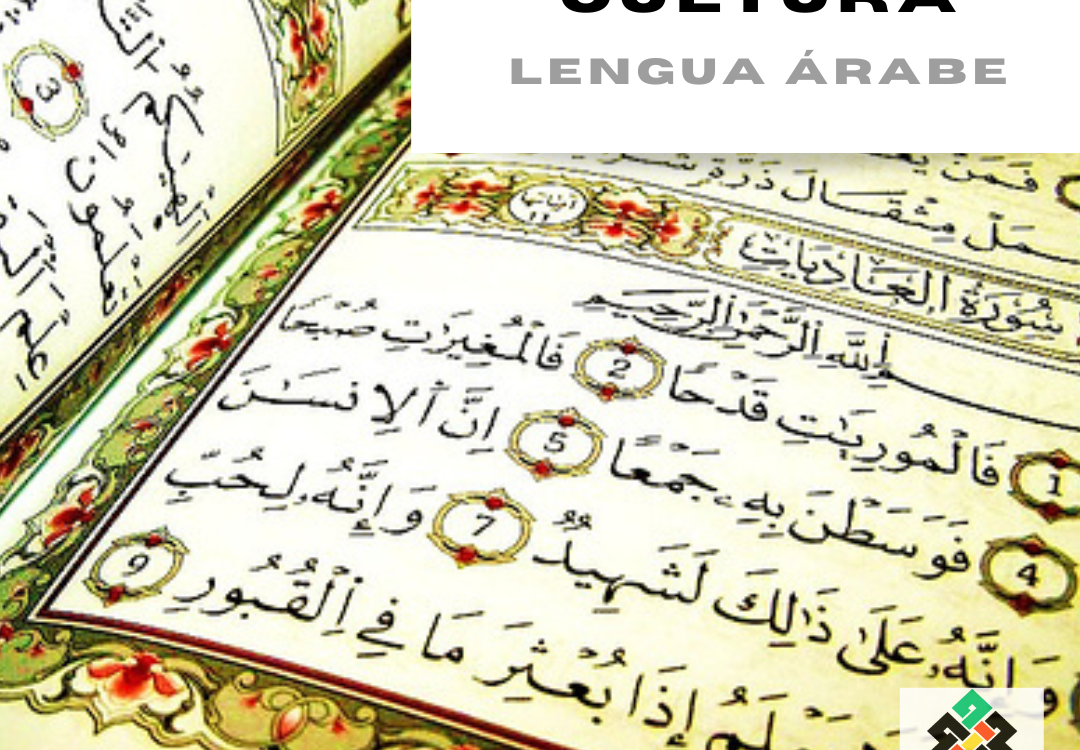 CULTURA
LENGUA ÁRABE
فَمَنْ
مِثْقَالَ ذَرَّةٍ
سُورَةُ الْعَادِيَاتِ
اٰيَاتُهَا ١١
اللّٰهِ الرَّحْمٰنِ الرَّحِيمِ
1 فَالْمُورِيٰتِ قَدْحًا 2 فَالْمُغِيرٰتِ صُبْحًا
4 فَوَسَطْنَ بِهِۦ جَمْعًا 5 اِنَّ ٱلْاِنسٰنَ
وَاِنَّهُۥ عَلَىٰ ذٰلِكَ لَشَهِيدٌ 7 وَإِنَّهُۥ لِحُبِّ
إِذَا بُعْثِرَ مَا فِي ٱلْقُبُورِ 9
٣